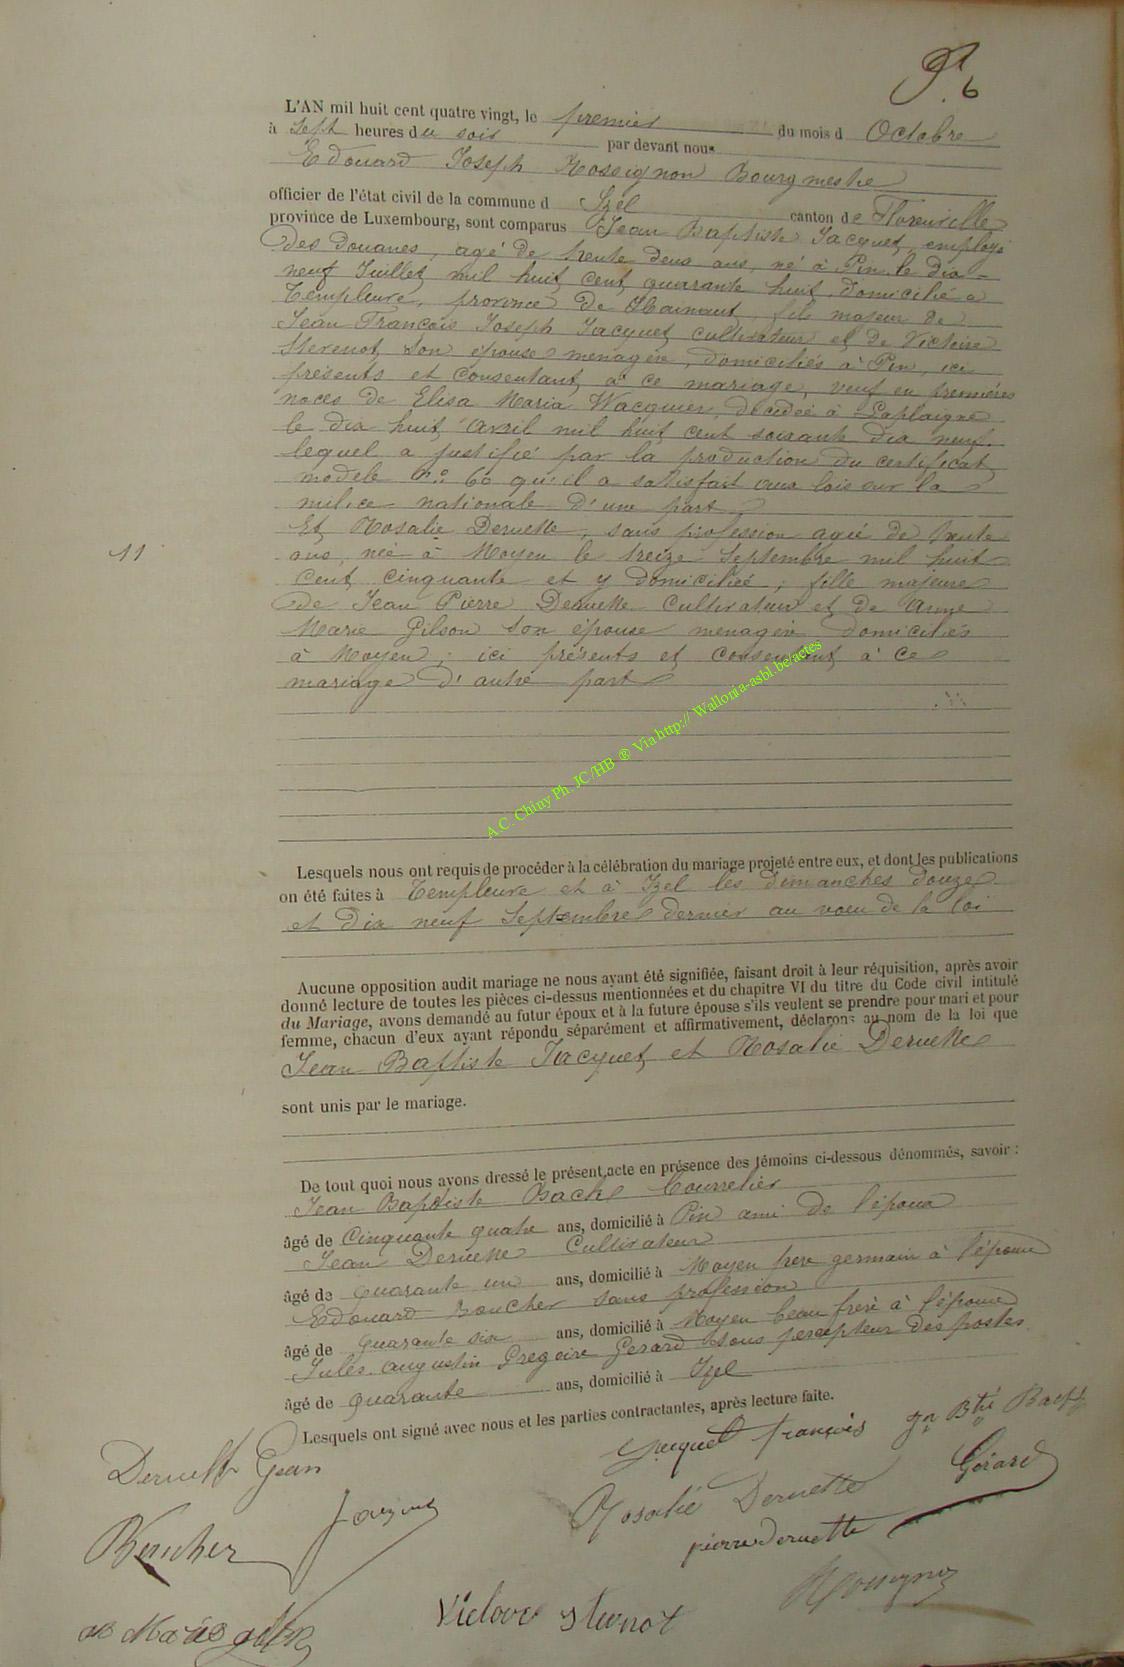 6
L'AN mil huit cent quatre vingt, le premier du mois d Octobre
à sept heures du soir par devant nous
Edouard Joseph Rossignon Bourgmestre
officier de l'état civil de la commune d Izel canton de Florenville
province de Luxembourg, sont comparus Jean Baptiste Jacquet, employé
des Douanes, agé de trente deux ans, né à Pin le dix-
neuf Juillet mil huit cent quarante huit, domicilié à
Templeuve, province de Hainaut, fils majeur de
Jean François Joseph Jacquet cultivateur et de Victoire
Stevenot son épouse menagère, domiciliés à Pin, ici
présents et consentant à ce mariage, veuf en premières
noces de Elisa Maria Wacquier, décédée à Laplaigne
le dix huit avril mil huit cent soixante dix neuf,
lequel a justifié par la production du certificat
modèle n° 60 qu'il a satisfait aux lois sur la
milice nationale d'une part
Et Rosalie Deruette, sans profession agée de trente
11
ans, née à Moyen le treize Septembre mil huit
cent cinquante et y domiciliée, fille majeure
de Jean Pierre Deruette cultivateur et de Anne
Marie Gilson son épouse menagère domiciliés
à Moyen, ici présents et consentant à ce
mariage d'autre part
A.C. Chiny Ph. JC/HB ® Via http:// Wallonia-asbl.be/actes
Lesquels nous ont requis de procéder à la célébration du mariage projeté entre eux, et dont les publications
on été faites à Templeuve et à Izel les dimanches douze
et dix neuf Septembre dernier au voeu de la loi
Aucune opposition audit mariage ne nous ayant été signifiée, faisant droit à leur réquisition, après avoir
donné lecture de toutes les pièces ci-dessus mentionnées et du chapitre VI du titre du Code civil intitulé
du Mariage, avons demandé au futur époux et à la future épouse s'ils veulent se prendre pour mari et pour
femme, chacun d'eux ayant répondu séparément et affirmativement, déclarons au nom de la loi que
Jean Baptiste Jacquet et Rosalie Deruette
sont unis par le mariage.
De tout quoi nous avons dressé le présent acte en présence des témoins ci-dessous dénommés, savoir :
Jean Baptiste Bach Bourrelier
âgé de Cinquante quatre ans, domicilié à Pin ami de l'époux
Jean Deruette Cultivateur
âgé de quarante un ans, domicilié à Moyen frère germain à l'épouse
Edouard Boucher sans profession
âgé de quarante six ans, domicilié à Moyen beau frère à l'épouse
Jules Augustin Gregoire Gerard sous percepteur des postes
âgé de quarante ans, domicilié à Izel
Lesquels ont signé avec nous et les parties contractantes, après lecture faite.
Jacquet françois Jn Bte
Deruette Jean
Gérard
Rosalie Deruette
Jacquet
Boucher
pierre deruette
Rossignon
Victoire Stevenot